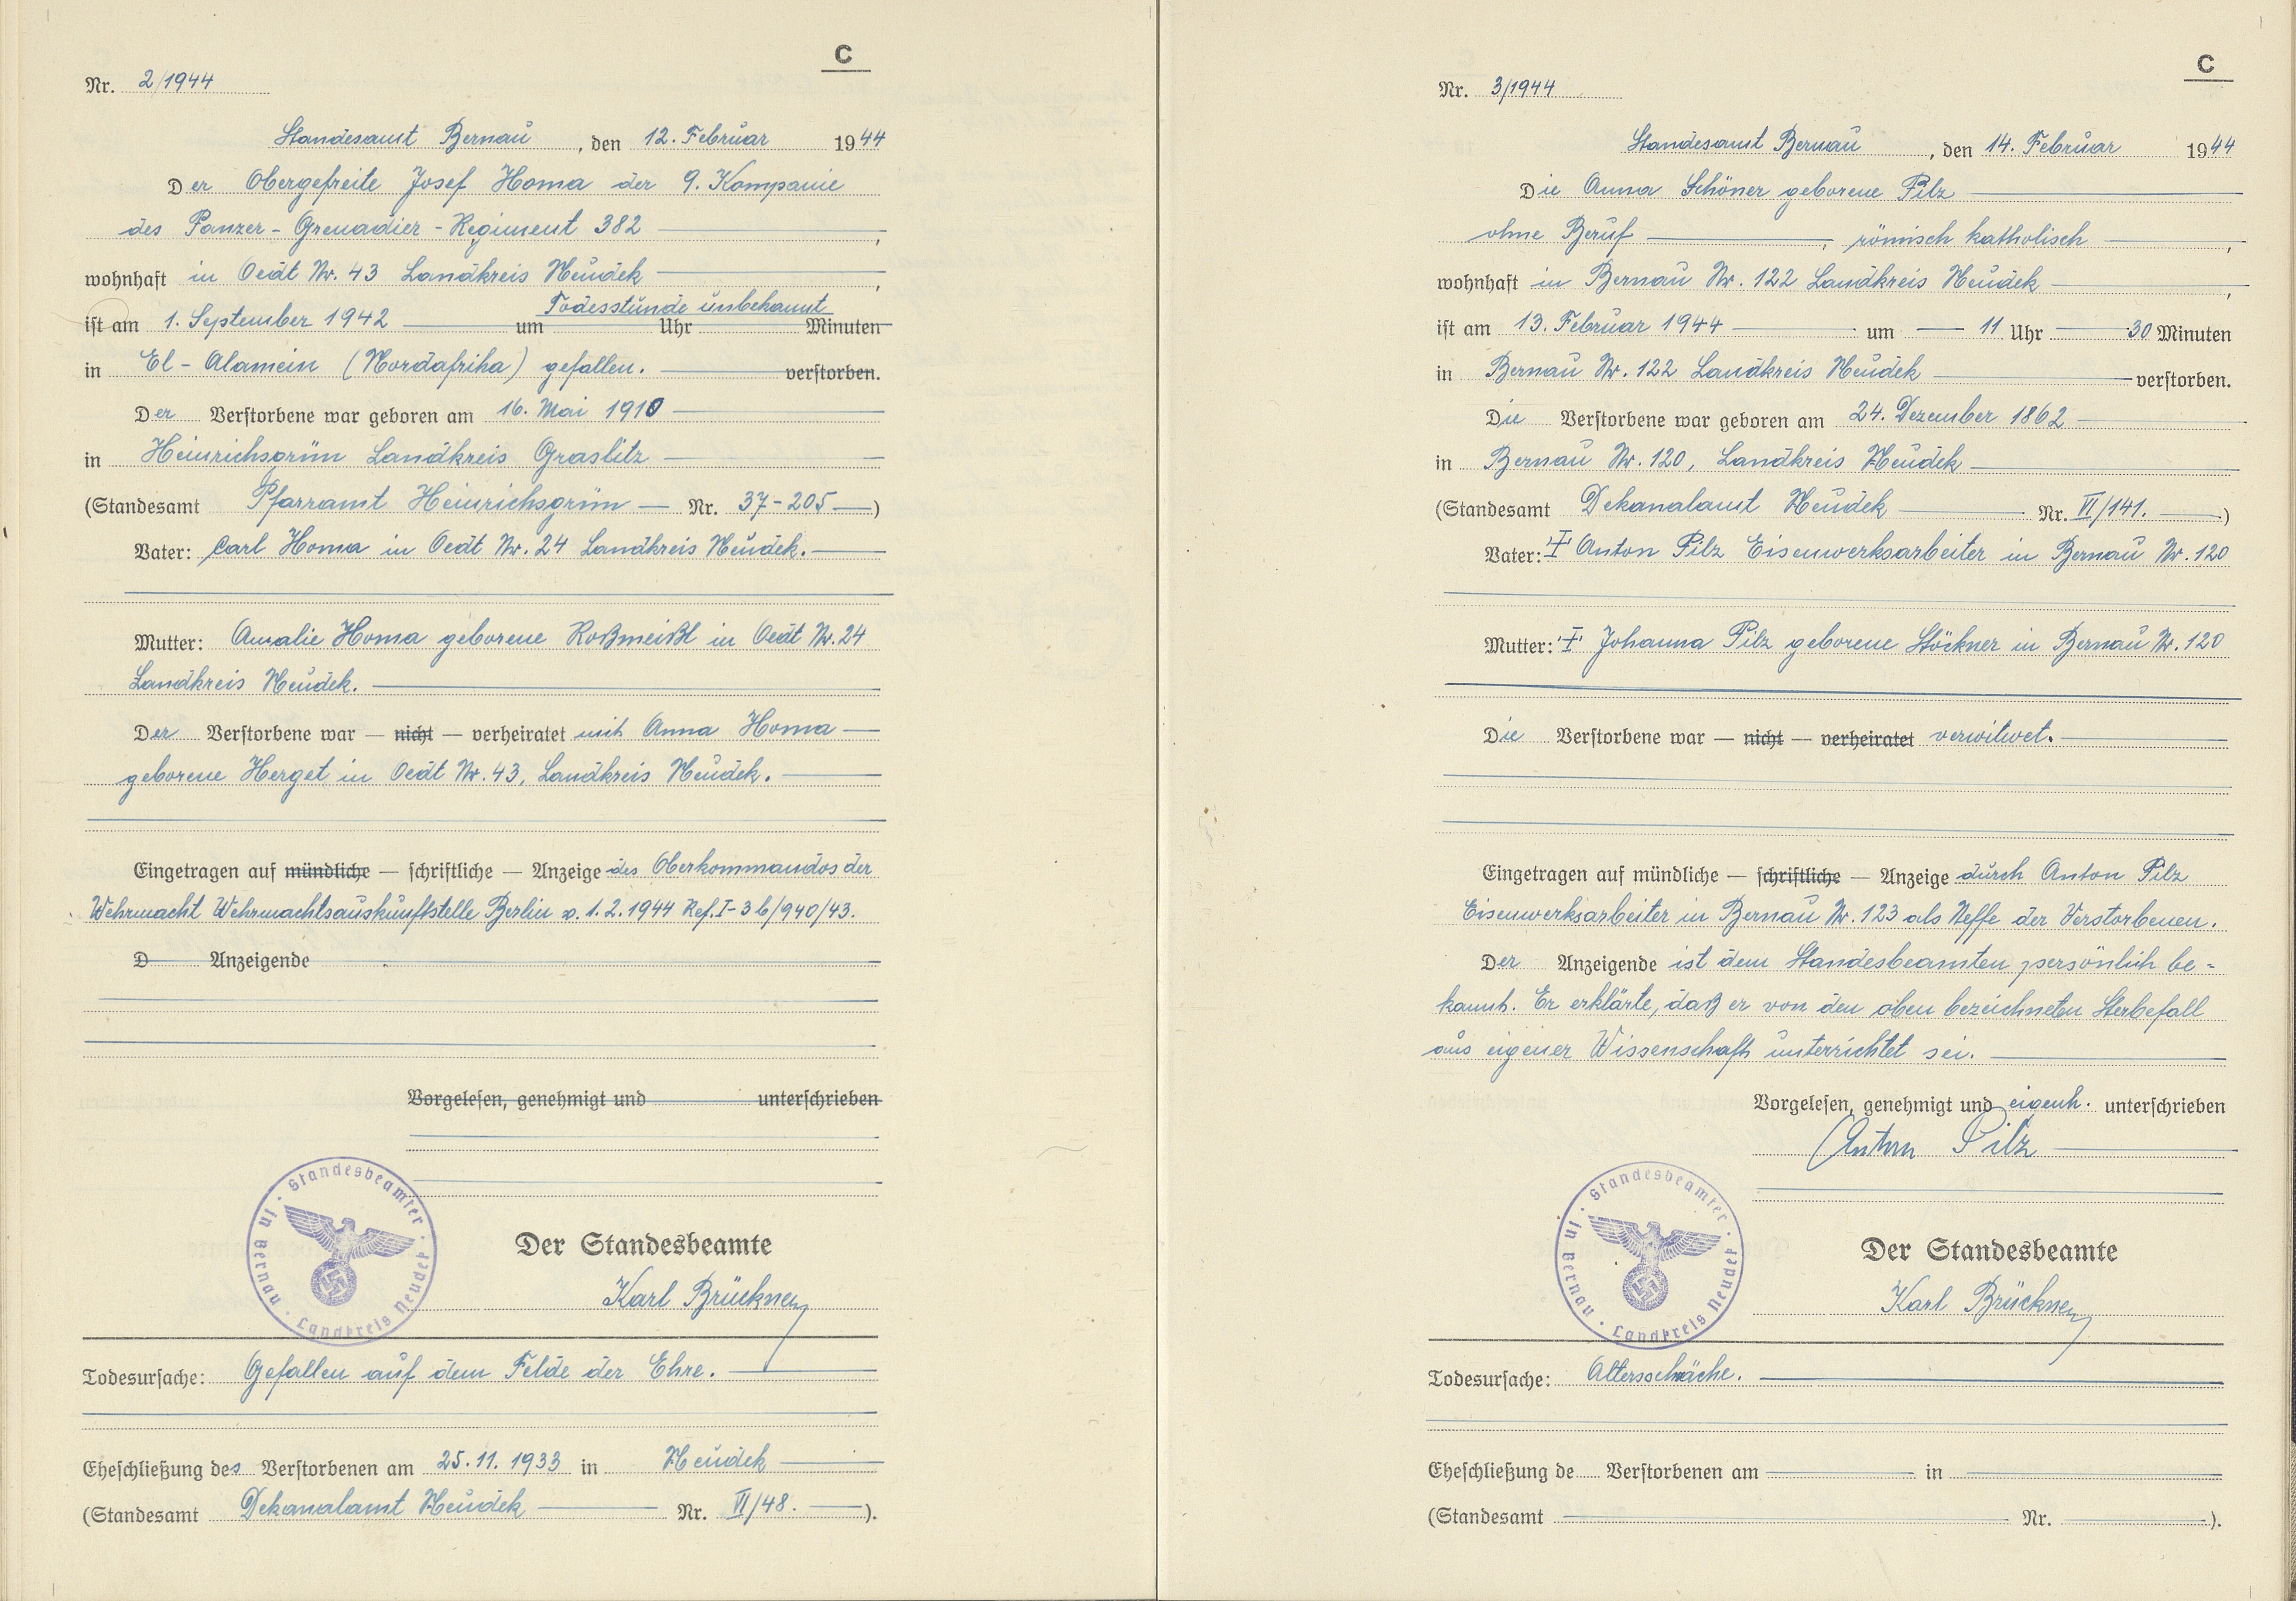 C
Nr. 2/1944
Standesamt Bernau, den 12. Februar 1944
Der Obergefreite Josef Homa der 9. Kompanie
des Panzer-Grenadier-Regiment 382,
wohnhaft in Oedt Nr. 43 Landkreis Neudek,
Todesstunde unbekannt
ist am 1. September 1942 um Uhr Minuten
in El-Alamein (Nordafrika) gefallen. verstorben.
Der Verstorbene war geboren am 16. Mai 1910
in Heinrichsgrün Landkreis Graslitz
(Standesamt Pfarramt Heinrichsgrün Nr. 37-205)
Vater: Carl Homa in Oedt Nr. 24 Landkreis Neudek.
Mutter: Amalie Homa geborene Roßmeißl in Oedt Nr. 24
Landkreis Neudek.
Der Verstorbene war — nicht — verheiratet mit Anna Homa
geborene Herget in Oedt Nr. 43, Landkreis Neudek.
Eingetragen auf mündliche — schriftliche — Anzeige des Oberkommandos der
Wehrmacht Wehrmachtsauskunftstelle Berlin v. 1.2.1944 Ref. I-3b/940/43.
D Anzeigende
Vorgelesen, genehmigt und unterschrieben
Standesbeamter in Bernau Landkreis Neudek
Der Standesbeamte
Karl Brückner
Todesursache: Gefallen auf dem Felde der Ehre.
Eheschließung des Verstorbenen am 25.11.1933 in Neudek
(Standesamt Dekanalamt Neudek Nr. VI/48.).
C
Nr. 3/1944
Standesamt Bernau, den 14. Februar 1944
Die Anna Schöner geborene Pilz
ohne Beruf, römisch katholisch,
wohnhaft in Bernau Nr. 122 Landkreis Neudek,
ist am 13. Februar 1944 um 11 Uhr 30 Minuten
in Bernau Nr. 122 Landkreis Neudek verstorben.
Die Verstorbene war geboren am 24. Dezember 1862
in Bernau Nr. 120, Landkreis Neudek
(Standesamt Dekanalamt Neudek Nr. VI/141.)
Vater: † Anton Pilz Eisenwerksarbeiter in Bernau Nr. 120
Mutter: † Johanna Pilz geborene Stöckner in Bernau Nr. 120
Die Verstorbene war — nicht — verheiratet verwitwet.
Eingetragen auf mündliche — schriftliche — Anzeige durch Anton Pilz
Eisenwerksarbeiter in Bernau Nr. 123 als Neffe der Verstorbenen.
Der Anzeigende ist dem Standesbeamten persönlich be-
kannt. Er erklärte, daß er von den oben bezeichneten Sterbefall
aus eigener Wissenschaft unterrichtet sei.
Vorgelesen, genehmigt und eigenh. unterschrieben
Anton Pilz
Standesbeamter in Bernau Landkreis Neudek
Der Standesbeamte
Karl Brückner
Todesursache: Altersschäche.
Eheschließung de Verstorbenen am in
(Standesamt Nr. ).